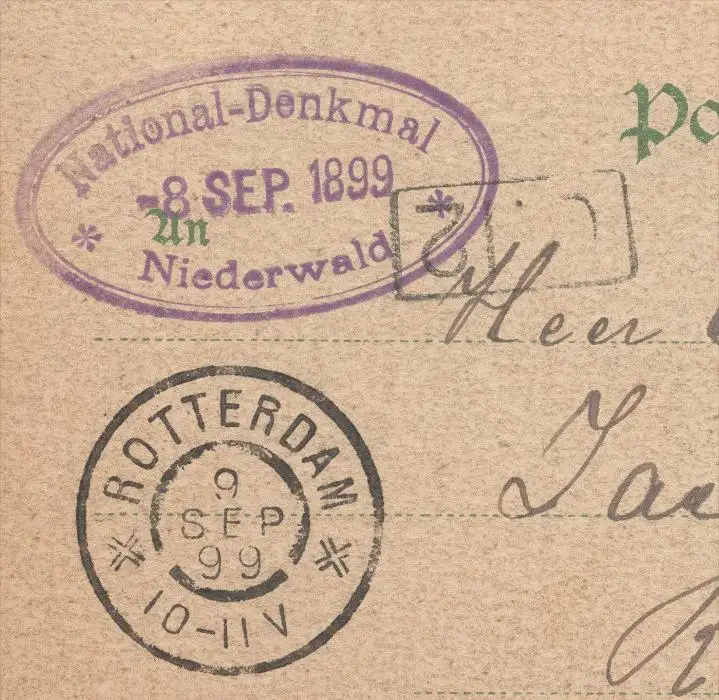 National-Denkmal
-8. SEP. 1899
* *
Niederwald
Po
An
2
Heer
ROTTERDAM
9
SEP
99
10-11 V